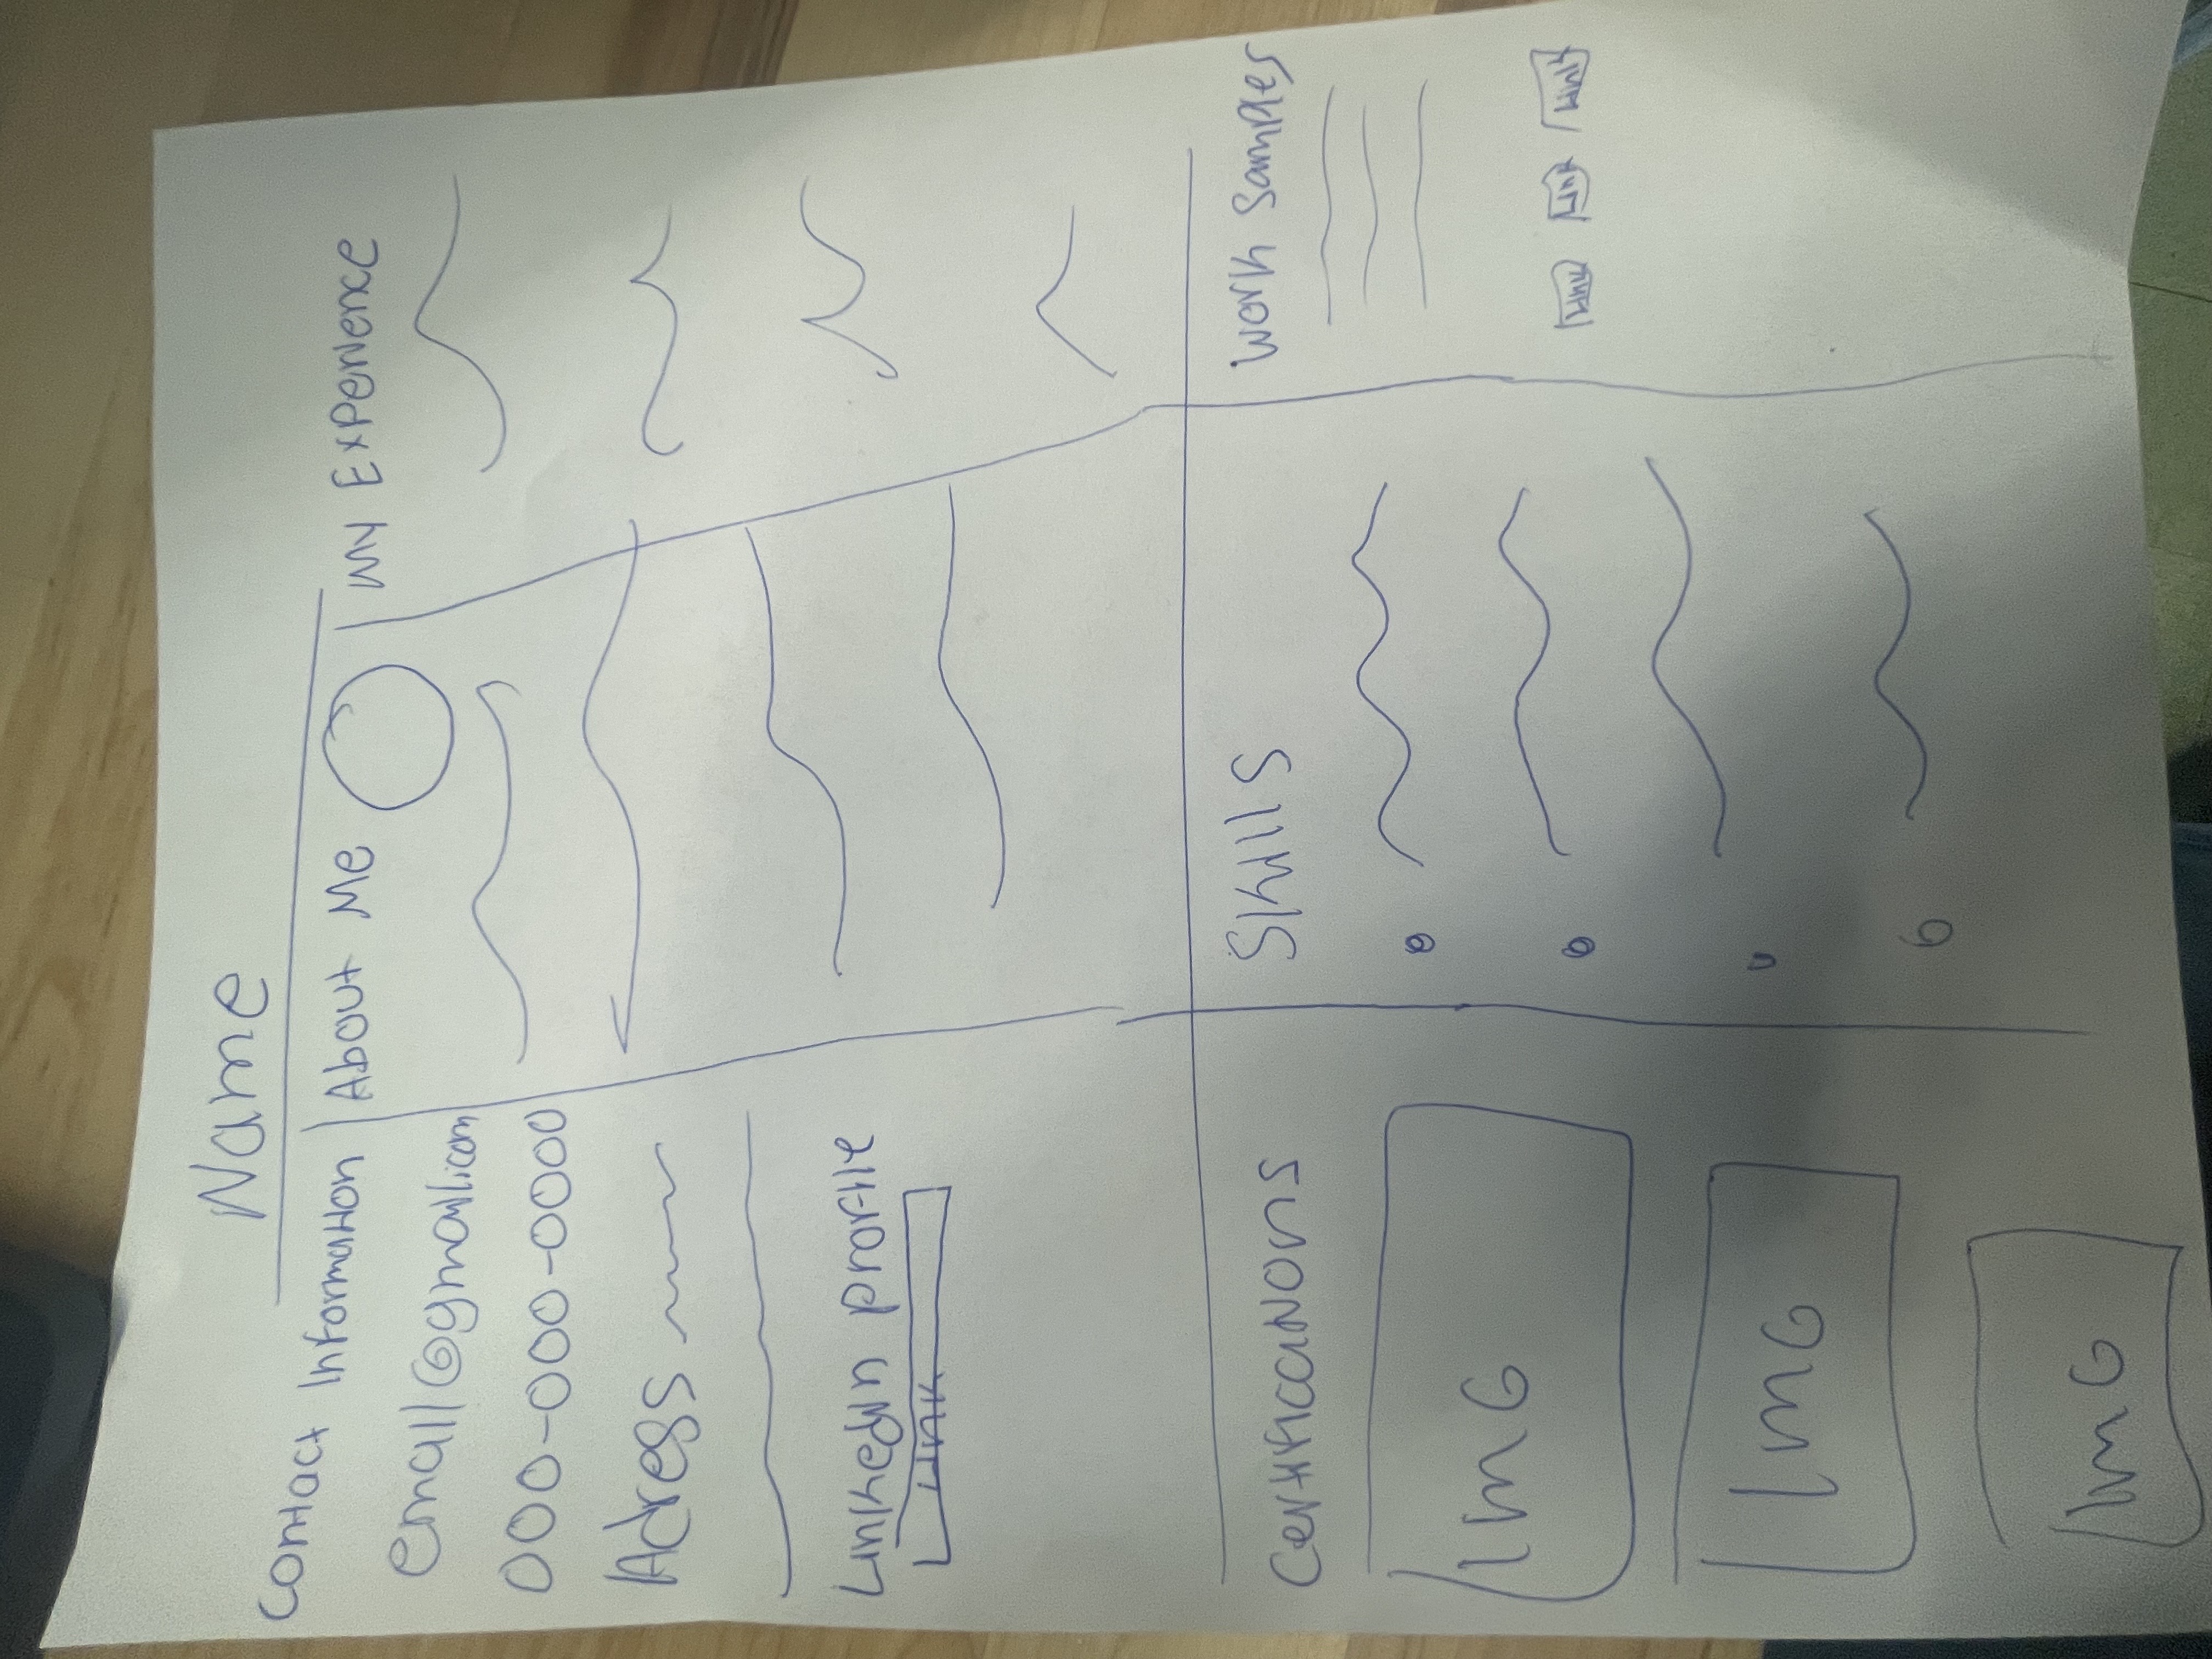 Name
Contact Information
email@gmail.com
000-000-0000
Adress
Linkedin profile
Link
About Me
My Experience
Certifications
IMG
IMG
IMG
Skills
Work Samples
Link Link Link